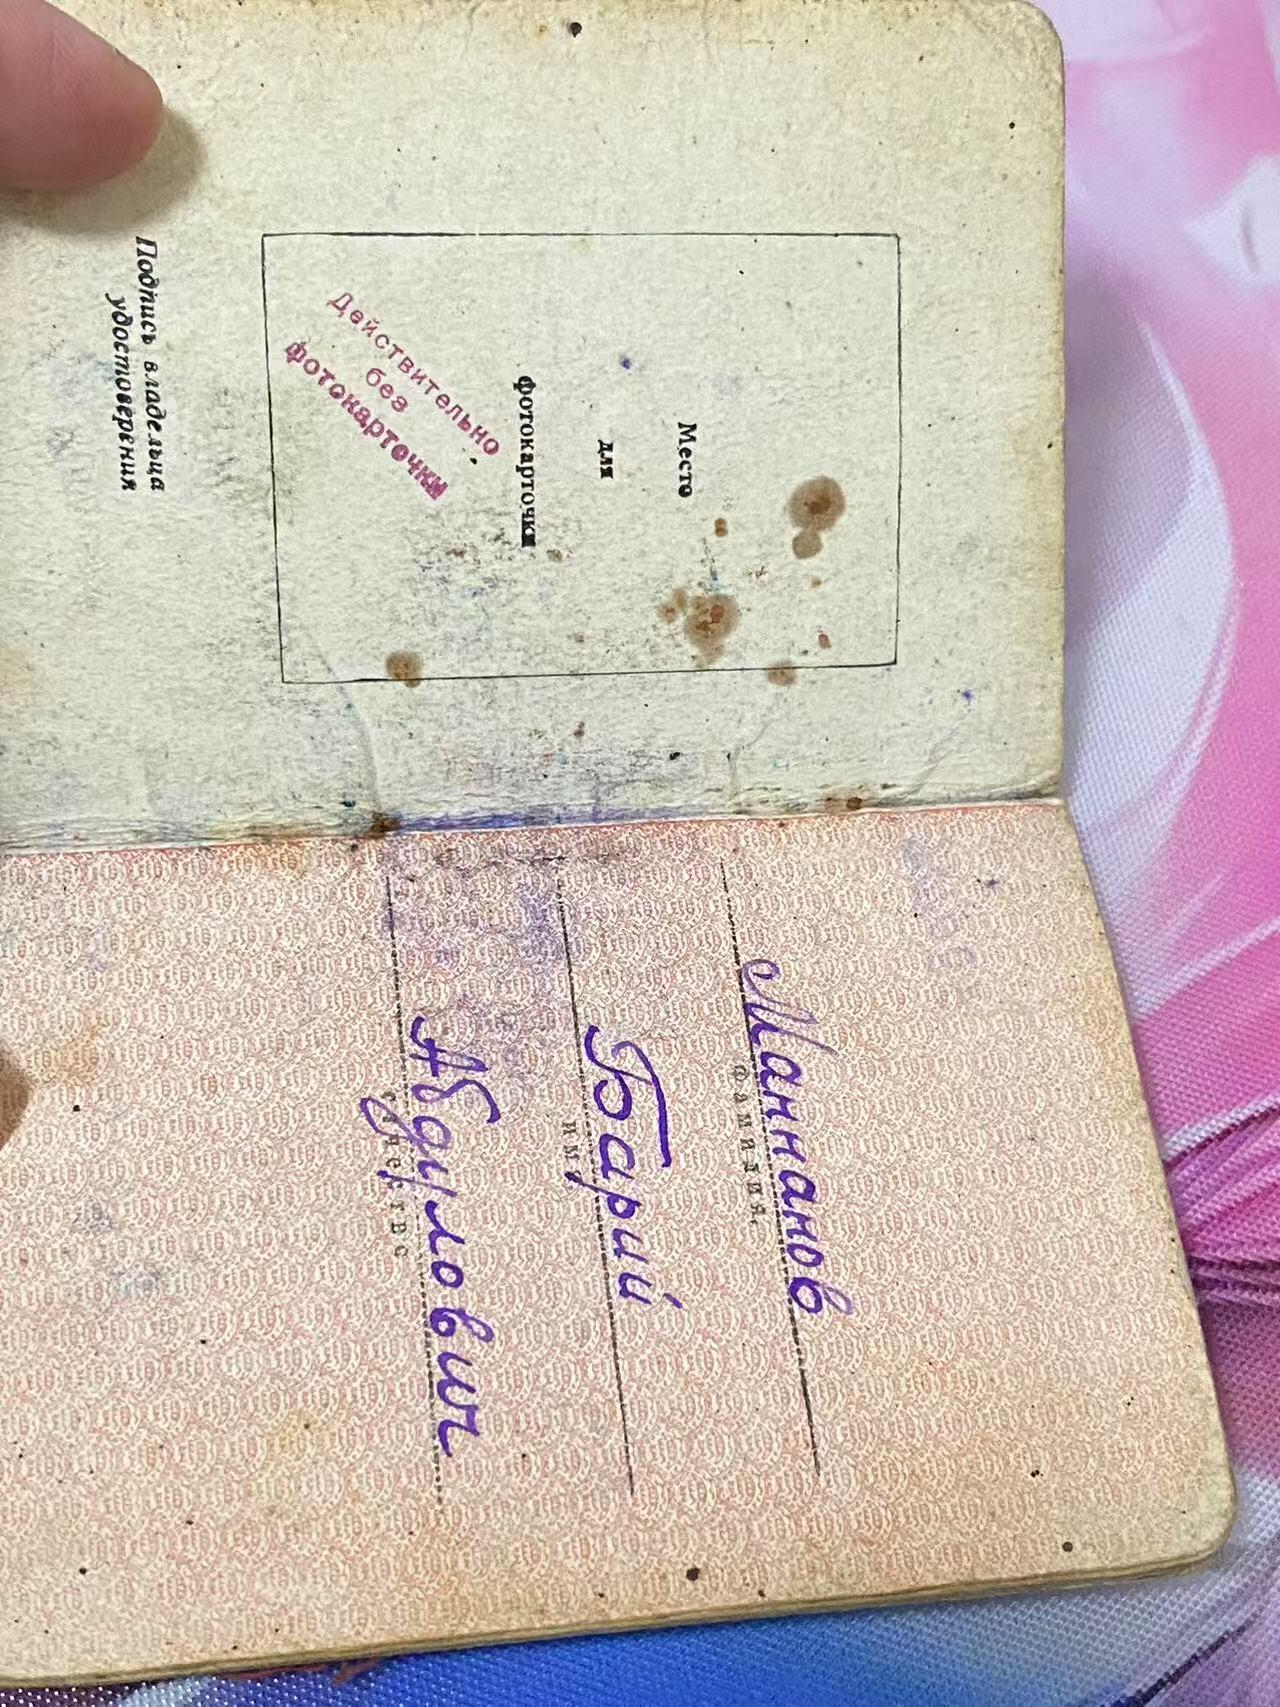 Место
для
фотокарточки
Действительно
без
фотокарточки
Подпись владельца
удостоверения
Маннанов
фамилия,
Барий
имя,
Абдулович
отчество